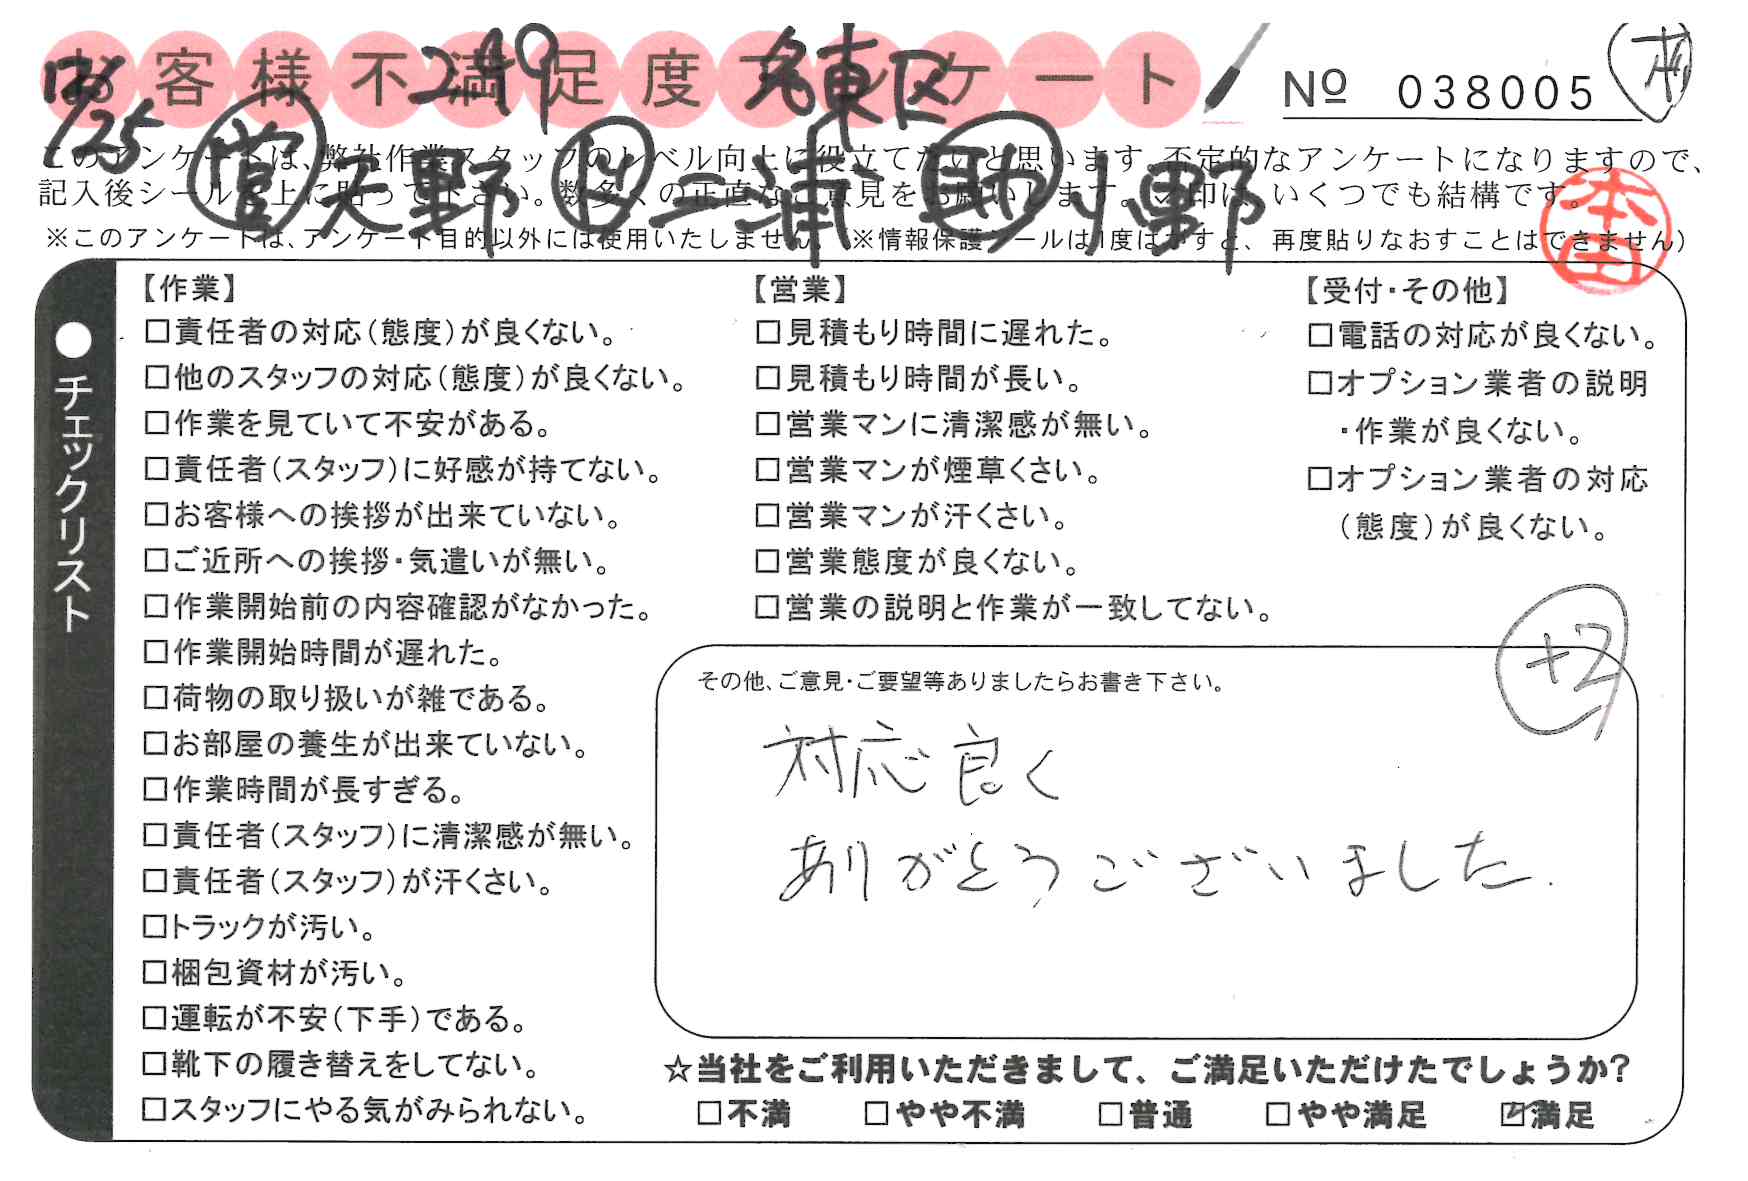 お客様不満足度アンケート
№ 038005
249 名東区
営 天野 上 三浦 助 小野
このアンケートは、弊社作業スタッフのレベル向上に役立てたいと思います。不定的なアンケートになりますので、
記入後シールを上に貼って下さい。数多くの正直なご意見をお願いします。✓印は、いくつでも結構です。
※このアンケートは、アンケート目的以外には使用いたしません。(※情報保護シールは1度はがすと、再度貼りなおすことはできません)
本田
●チェックリスト
【作業】
□責任者の対応(態度)が良くない。
□他のスタッフの対応(態度)が良くない。
□作業を見ていて不安がある。
□責任者(スタッフ)に好感が持てない。
□お客様への挨拶が出来ていない。
□ご近所への挨拶・気遣いが無い。
□作業開始前の内容確認がなかった。
□作業開始時間が遅れた。
□荷物の取り扱いが雑である。
□お部屋の養生が出来ていない。
□作業時間が長すぎる。
□責任者(スタッフ)に清潔感が無い。
□責任者(スタッフ)が汗くさい。
□トラックが汚い。
□梱包資材が汚い。
□運転が不安(下手)である。
□靴下の履き替えをしてない。
□スタッフにやる気がみられない。
【営業】
□見積もり時間に遅れた。
□見積もり時間が長い。
□営業マンに清潔感が無い。
□営業マンが煙草くさい。
□営業マンが汗くさい。
□営業態度が良くない。
□営業の説明と作業が一致してない。
【受付・その他】
□電話の対応が良くない。
□オプション業者の説明
・作業が良くない。
□オプション業者の対応
(態度)が良くない。
+2
その他、ご意見・ご要望等ありましたらお書き下さい。
対応良く
ありがとうございました.
☆当社をご利用いただきまして、ご満足いただけたでしょうか?
□不満 □やや不満 □普通 □やや満足 ☑満足